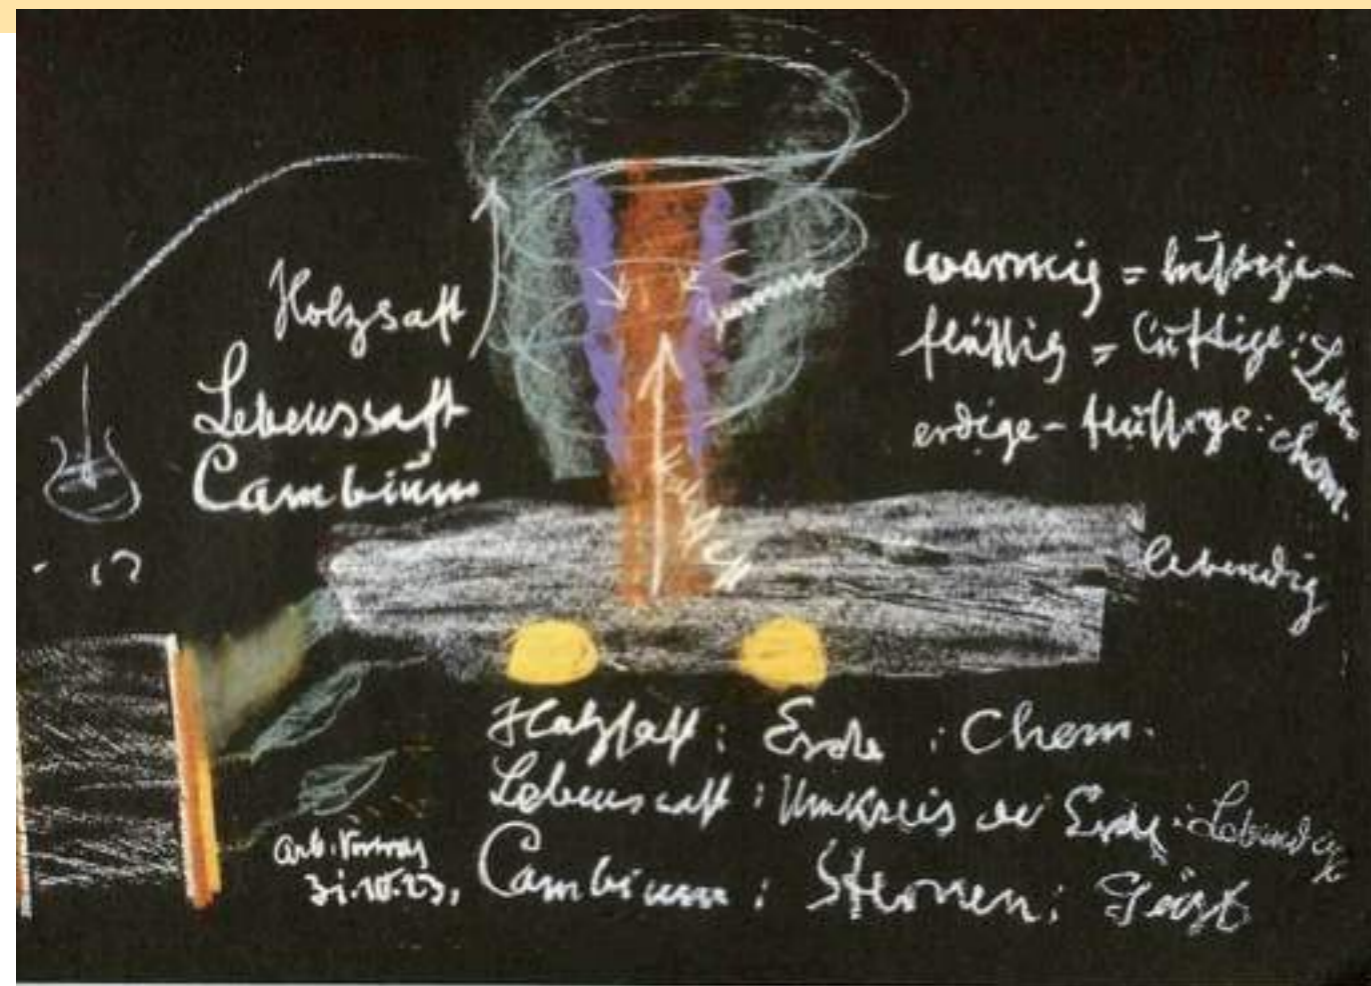 Holzsaft
Lebenssaft
Cambium
warmig = luftige-
flüssig = luftige: Leben
erdige - flüssige: chem.
lebendig
Holzsaft: Erde: Chem.
Lebenssaft: Umkreis der Erde: Lebendige
Cambium: Sternen: Geist
Arb. Vortrag
31.10.23,